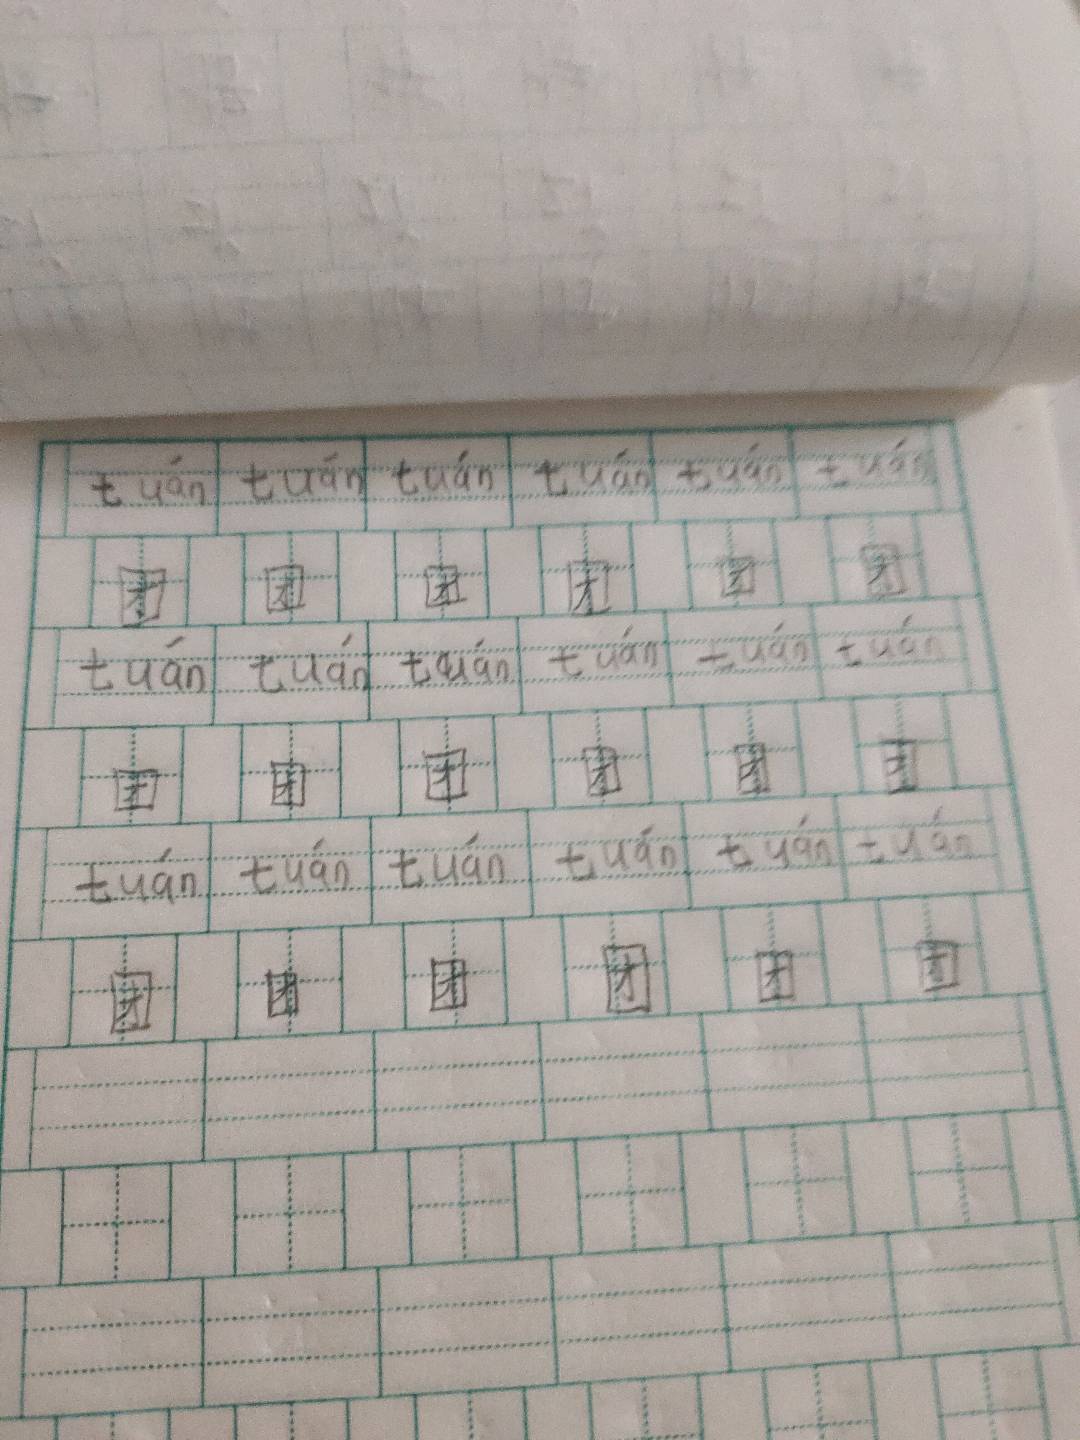 tuán tuán tuán tuán tuán tuán
团 团 团 团 团 团
tuán tuán tuán tuán tuán tuán
团 团 团 团 团 团
tuán tuán tuán tuán tuán tuán
团 团 团 团 团 团